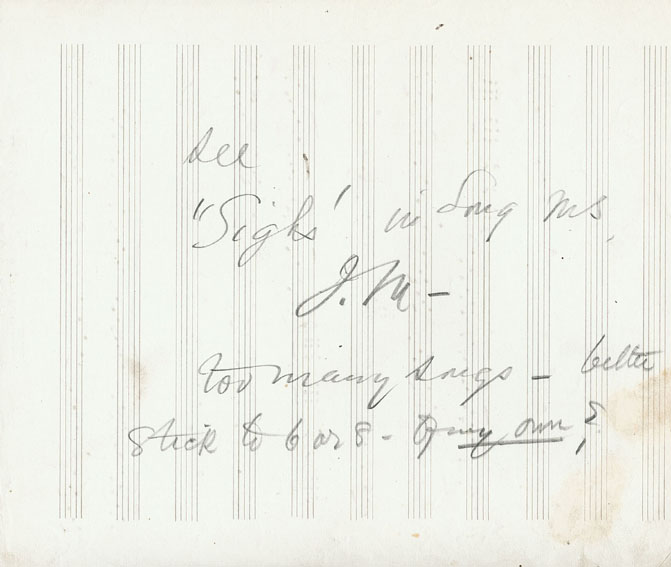 see
"Sighs' in Song MS.
J. M –
too many songs – better
stick to 6 or 8 – of my own ?